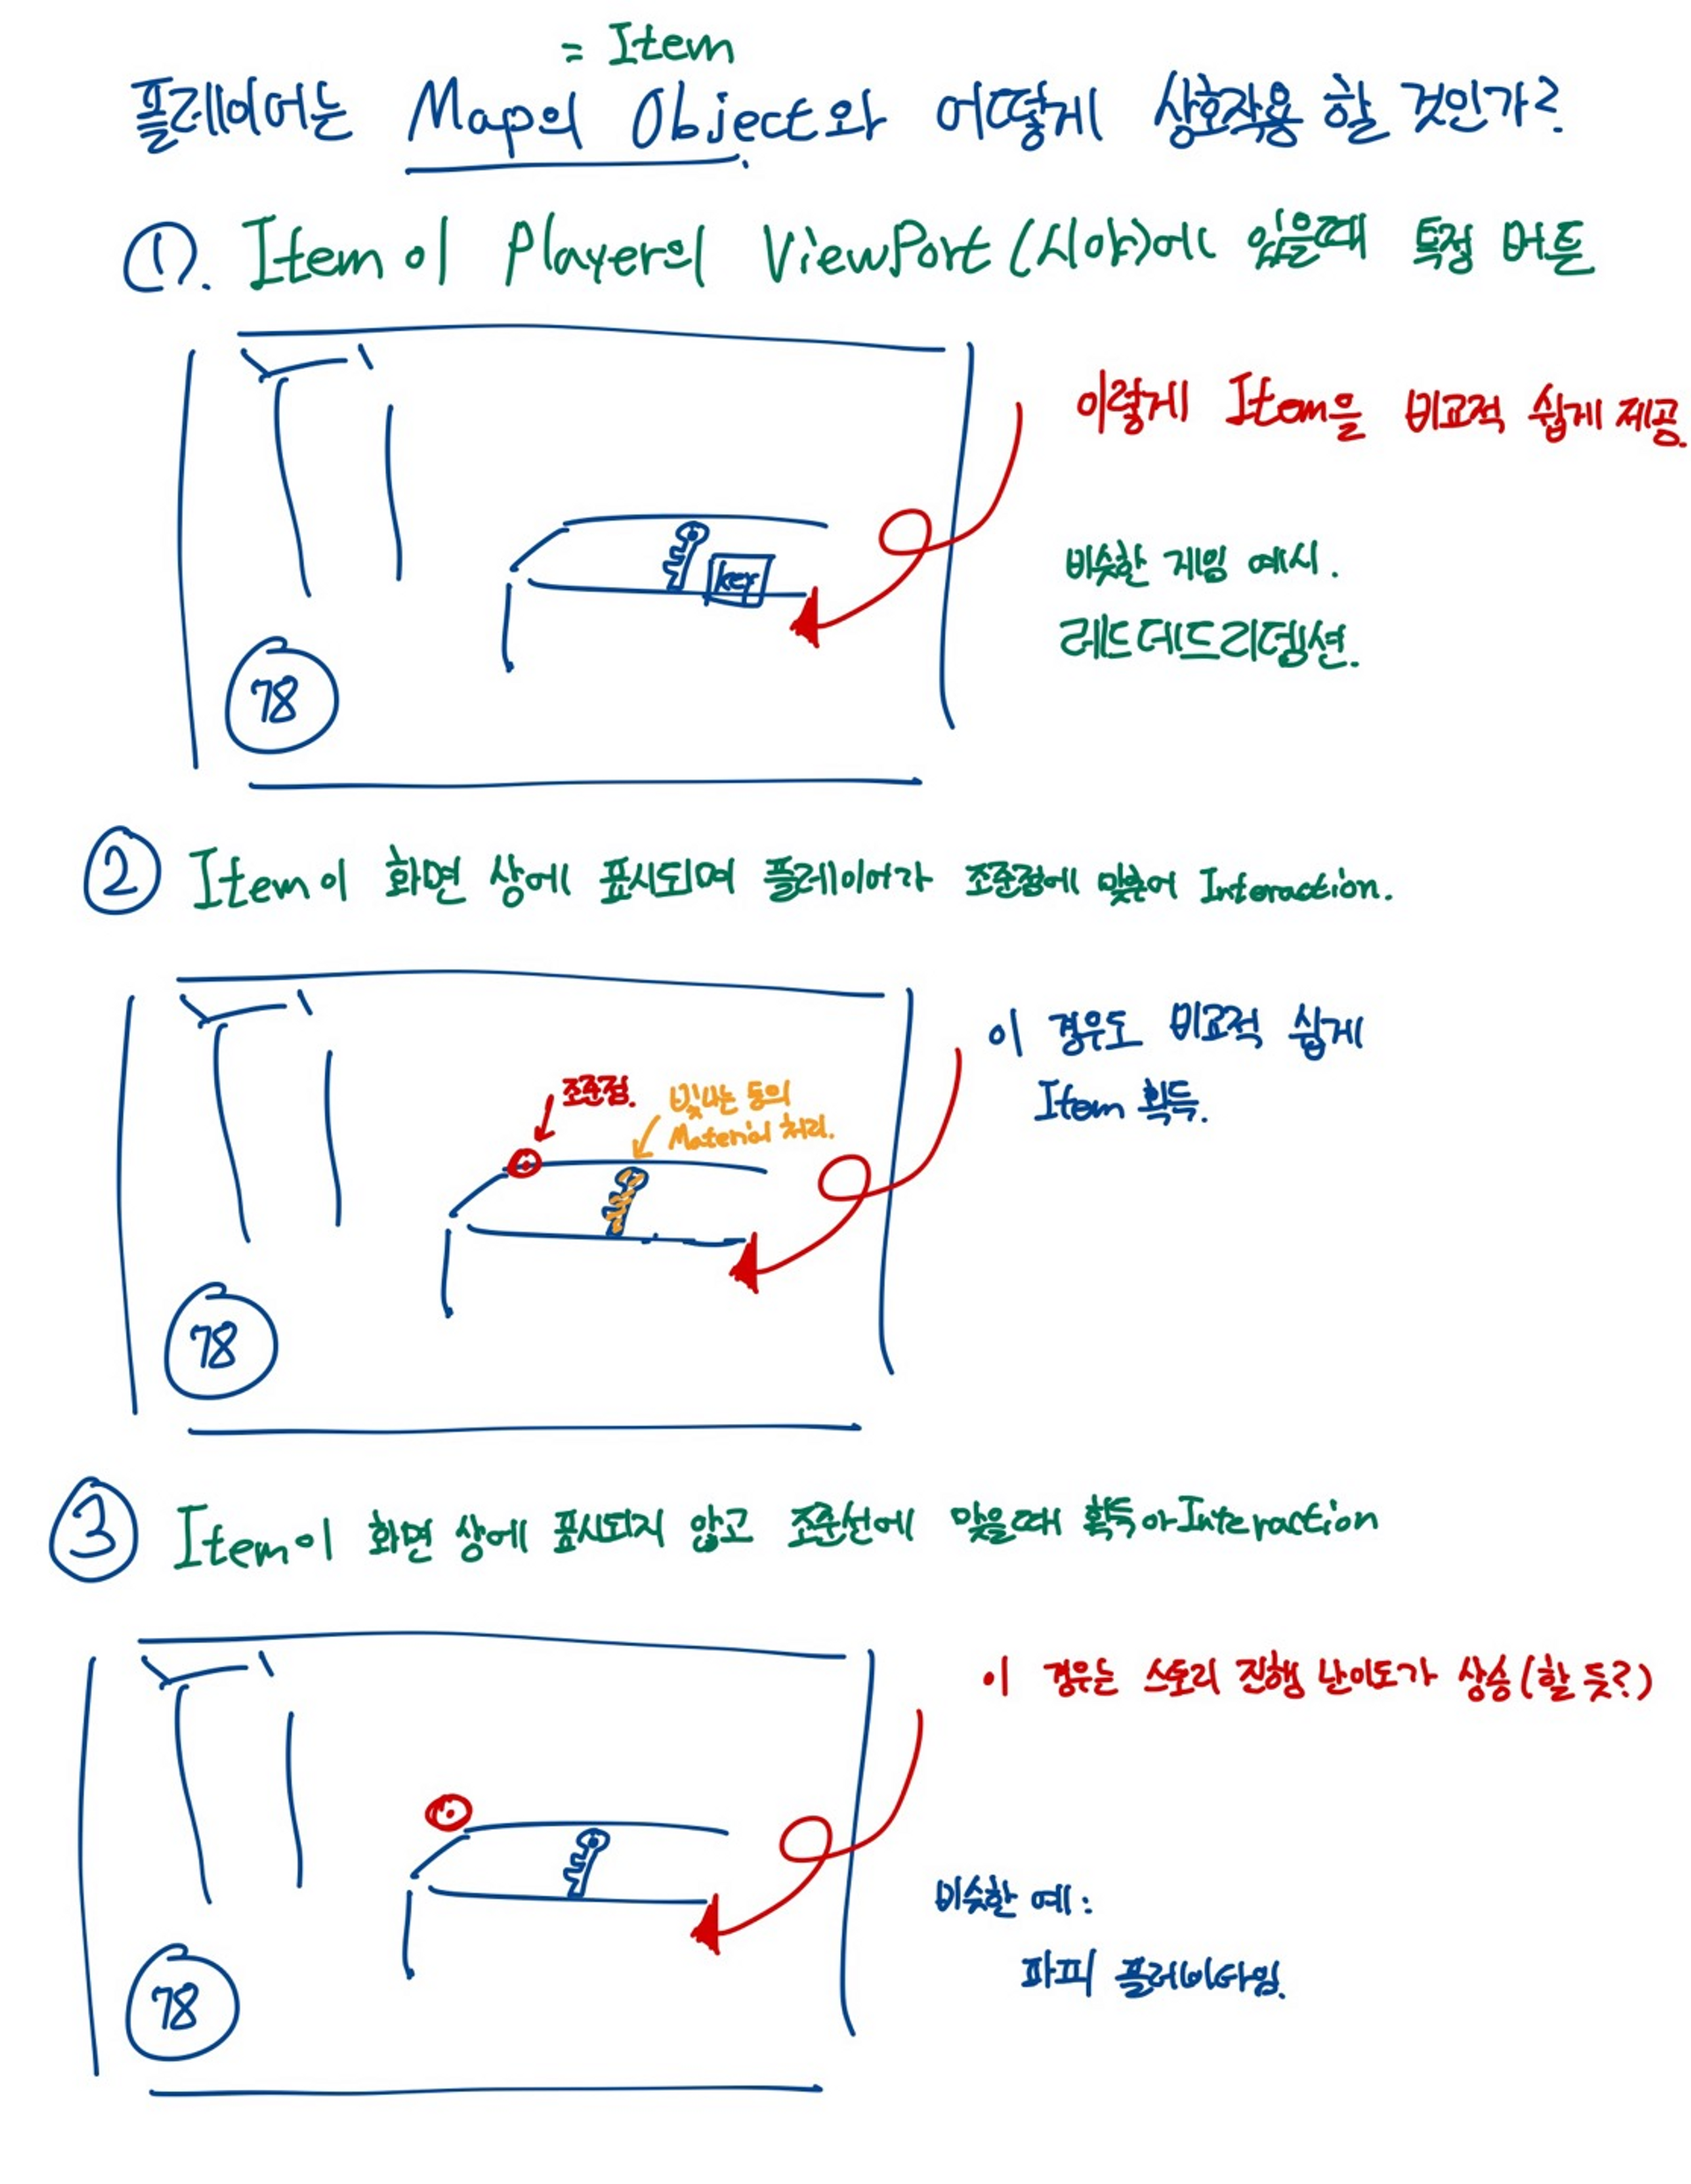 = Item
플레이어는 Map의 Object와 어떻게 상호작용 할 것인가?
①. Item이 Player의 ViewPort(시야)에 있을때 특정 버튼
이렇게 Item을 비교적 쉽게 제공.
key
비슷한 게임 예시.
레드데드리뎀션.
78
② Item이 화면 상에 표시되며 플레이어가 조준점에 맞춰 Interaction.
이 경우도 비교적 쉽게
Item 획득.
조준점.
빛나는 등의
Material 처리.
78
③ Item이 화면 상에 표시되지 않고 조준선에 맞을때 획득 or Interaction
이 경우는 스토리 진행 난이도가 상승(할 듯?)
비슷한 예:
파피 플레이타임.
78